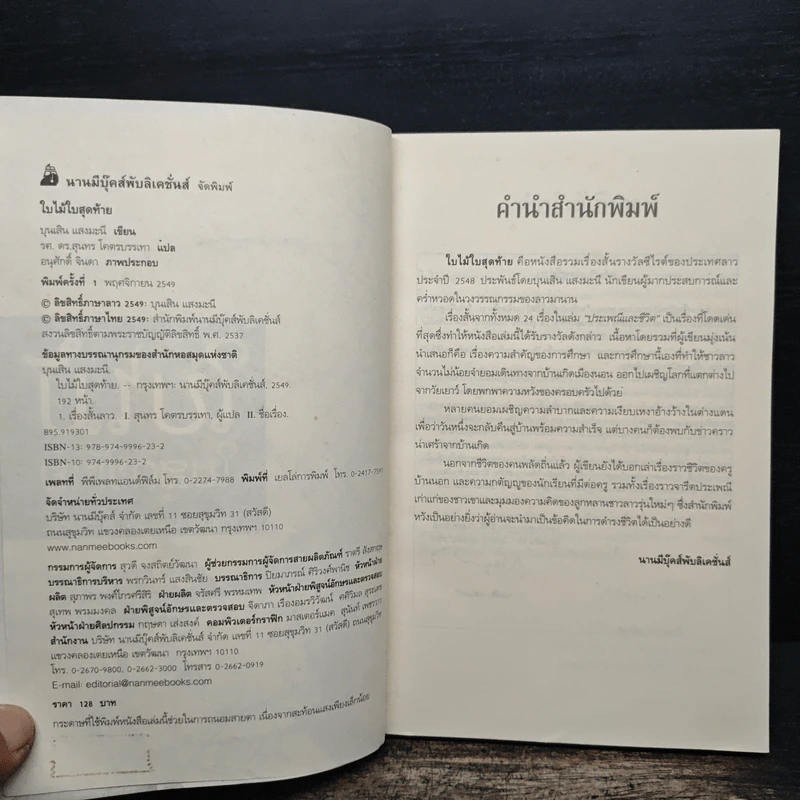 นานมีบุ๊คส์พับลิเคชั่นส์ จัดพิมพ์
ใบไม้ใบสุดท้าย
บุนเสิน แสงมะนี เขียน
รศ. ดร.สุนทร โคตรบรรเทา แปล
อนุศักดิ์ จินดา ภาพประกอบ
พิมพ์ครั้งที่ 1 พฤศจิกายน 2549
© ลิขสิทธิ์ภาษาลาว 2549: บุนเสิน แสงมะนี
© ลิขสิทธิ์ภาษาไทย 2549: สำนักพิมพ์นานมีบุ๊คส์พับลิเคชั่นส์
สงวนลิขสิทธิ์ตามพระราชบัญญัติลิขสิทธิ์ พ.ศ. 2537
ข้อมูลทางบรรณานุกรมของสำนักหอสมุดแห่งชาติ
บุนเสิน แสงมะนี
ใบไม้ใบสุดท้าย. -- กรุงเทพฯ: นานมีบุ๊คส์พับลิเคชั่นส์, 2549.
192 หน้า.
1. เรื่องสั้นลาว. I. สุนทร โคตรบรรเทา, ผู้แปล II. ชื่อเรื่อง.
895.919301
ISBN-13: 978-974-9996-23-2
ISBN-10: 974-9996-23-2
เพลทที่ พีพีเพลทแอนด์ฟิล์ม โทร. 0-2274-7988 พิมพ์ที่ เยลโล่การพิมพ์ โทร. 0-2417-
จัดจำหน่ายทั่วประเทศ
บริษัท นานมีบุ๊คส์ จำกัด เลขที่ 11 ซอยสุขุมวิท 31 (สวัสดี)
ถนนสุขุมวิท แขวงคลองเตยเหนือ เขตวัฒนา กรุงเทพฯ 10110
www.nanmeebooks.com
กรรมการผู้จัดการ สุวดี จงสถิตย์วัฒนา ผู้ช่วยกรรมการผู้จัดการสายผลิตภัณฑ์ ราตรี
บรรณาธิการบริหาร พรกวินทร์ แสงสินชัย บรรณาธิการ ปิยมาภรณ์ ศิริวงศ์พานิช หัวหน้าฝ่าย
ผลิต สุภาพร พงศ์ไกรศรีสิริ ฝ่ายผลิต จรัสศรี พรหมเทพ หัวหน้าฝ่ายพิสูจน์อักษรและตรวจสอบ
สุเทพ พรมมงคล ฝ่ายพิสูจน์อักษรและตรวจสอบ จิดาภา เรืองอมรวิวัฒน์ คศิวิมล
หัวหน้าฝ่ายศิลปกรรม กฤษดา เส่งสงค์ คอมพิวเตอร์กราฟิก มาสเตอร์แมค สุนันท์
สำนักงาน บริษัท นานมีบุ๊คส์ จำกัด เลขที่ 11 ซอยสุขุมวิท 31 (สวัสดี) ถนนสุขุมวิท
แขวงคลองเตยเหนือ เขตวัฒนา กรุงเทพฯ 10110
โทร. 0-2670-9800, 0-2662-3000 โทรสาร 0-2662-0919
E-mail: editorial@nanmeebooks.com
ราคา 128 บาท
กระดาษที่ใช้พิมพ์หนังสือเล่มนี้ช่วยในการถนอมสายตา เนื่องจากสะท้อนแสงเพียงเล็กน้อย
คำนำสำนักพิมพ์
ใบไม้ใบสุดท้าย คือหนังสือรวมเรื่องสั้นรางวัลซีไรต์ของประเทศลาว
ประจำปี 2548 ประพันธ์โดยบุนเสิน แสงมะนี นักเขียนผู้มากประสบการณ์และ
คร่ำหวอดในวงวรรณกรรมของลาวมานาน
เรื่องสั้นจากทั้งหมด 24 เรื่องในเล่ม "ประเพณีและชีวิต" เป็นเรื่องที่โดดเด่น
ที่สุดซึ่งทำให้หนังสือเล่มนี้ได้รับรางวัลดังกล่าว เนื้อหาโดยรวมที่ผู้เขียนมุ่งเน้น
นำเสนอก็คือ เรื่องความสำคัญของการศึกษา และการศึกษานี้เองที่ทำให้ชาวลาว
จำนวนไม่น้อยจำยอมเดินทางจากบ้านเกิดเมืองนอน ออกไปเผชิญโลกที่แตกต่างไป
จากวัยเยาว์ โดยพกพาความหวังของครอบครัวไปด้วย
หลายคนยอมเผชิญความลำบากและความเงียบเหงาอ้างว้างในต่างแดน
เพื่อว่าวันหนึ่งจะกลับคืนสู่บ้านพร้อมความสำเร็จ แต่บางคนก็ต้องพบกับข่าวคราว
น่าเศร้าจากบ้านเกิด
นอกจากชีวิตของคนพลัดถิ่นแล้ว ผู้เขียนยังได้บอกเล่าเรื่องราวชีวิตของครู
บ้านนอก และความกตัญญูของนักเรียนที่มีต่อครู รวมทั้งเรื่องราวจารีตประเพณี
เก่าแก่ของชาวเขาและมุมมองความคิดของลูกหลานชาวลาวรุ่นใหม่ๆ ซึ่งสำนักพิมพ์
หวังเป็นอย่างยิ่งว่าผู้อ่านจะนำมาเป็นข้อคิดในการดำรงชีวิตได้เป็นอย่างดี
นานมีบุ๊คส์พับลิเคชั่นส์